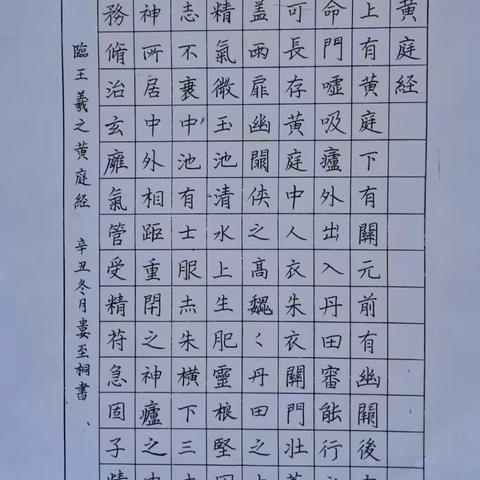 黄庭経
上有黄庭下有關元前有幽關後
命門噓吸廬外出入丹田審能行
可長存黄庭中人衣朱衣關門壯
盖兩扉幽關俠之高魏〻丹田之
精氣微玉池清水上生肥靈根堅
志不衰中池有士服赤朱横下三
神所居中外相距重閉之神廬之
務脩治玄癰氣管受精苻急固子精
臨王羲之黄庭経 辛丑冬月娄至桐書